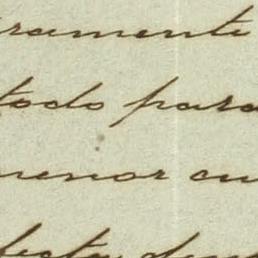 ramente
todo para
menor cu